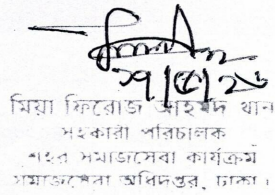 ২৭/৫/২৬
মিয়া ফিরোজ আহম্মদ খান
সহকারী পরিচালক
শহর সমাজসেবা কার্যক্রম
সমাজসেবা অধিদপ্তর, ঢাকা।